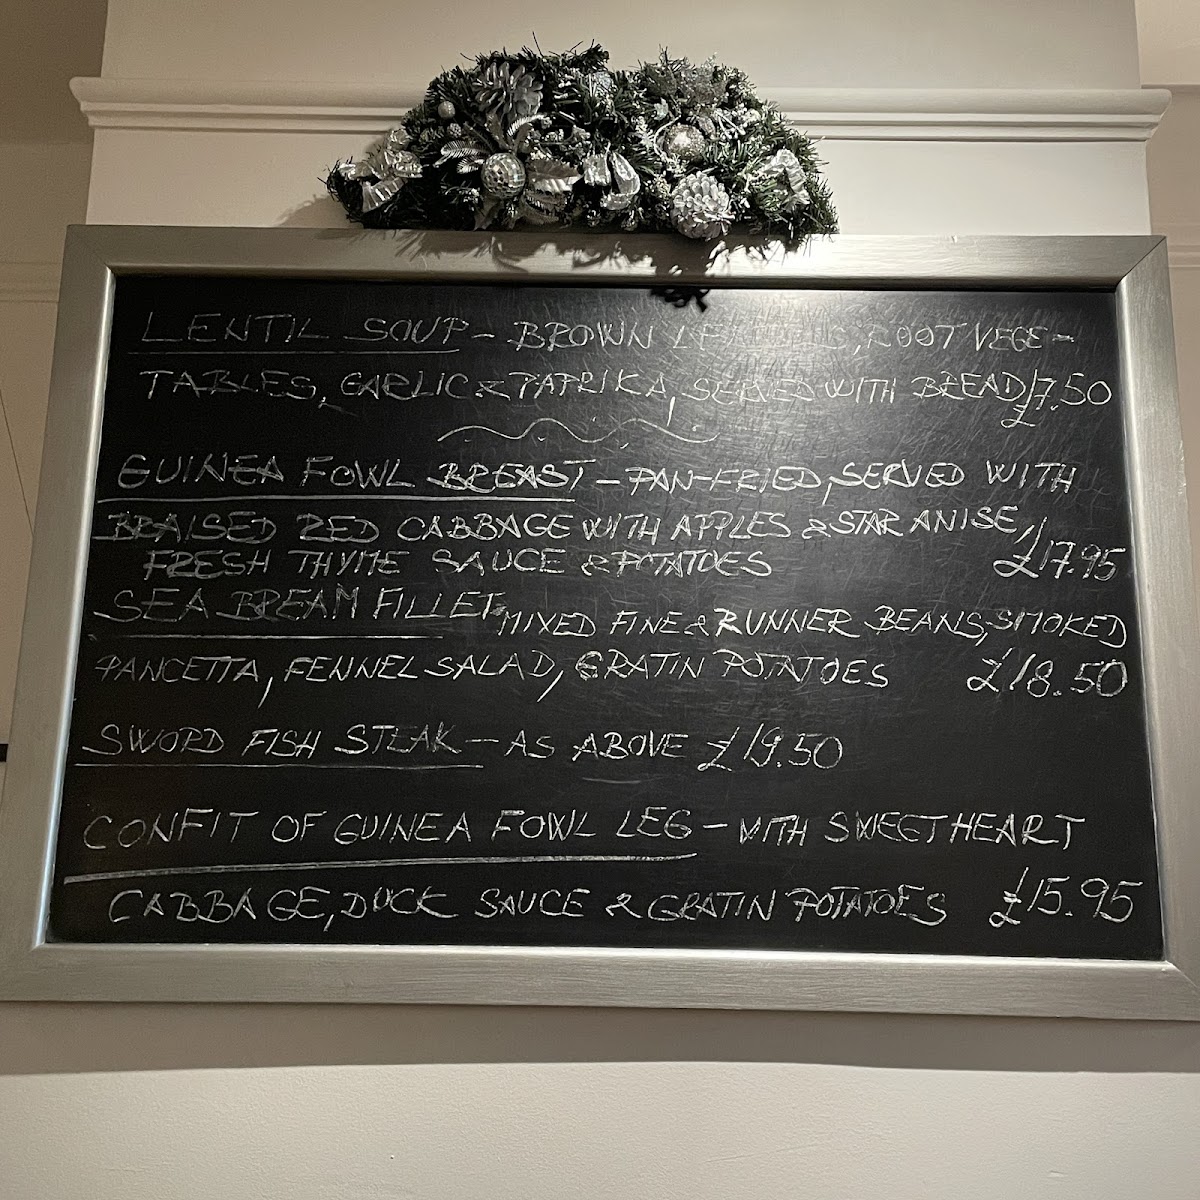 LENTIL SOUP - BROWN LENTILS, ROOT VEGE-
TABLES, GARLIC & PAPRIKA, SERVED WITH BREAD £7.50
GUINEA FOWL BREAST - PAN-FRIED, SERVED WITH
BRAISED RED CABBAGE WITH APPLES & STAR ANISE,
FRESH THYME SAUCE & POTATOES £17.95
SEA BREAM FILLET, MIXED FINE & RUNNER BEANS, SMOKED
PANCETTA, FENNEL SALAD, GRATIN POTATOES £18.50
SWORD FISH STEAK - AS ABOVE £19.50
CONFIT OF GUINEA FOWL LEG - WITH SWEETHEART
CABBAGE, DUCK SAUCE & GRATIN POTATOES £15.95